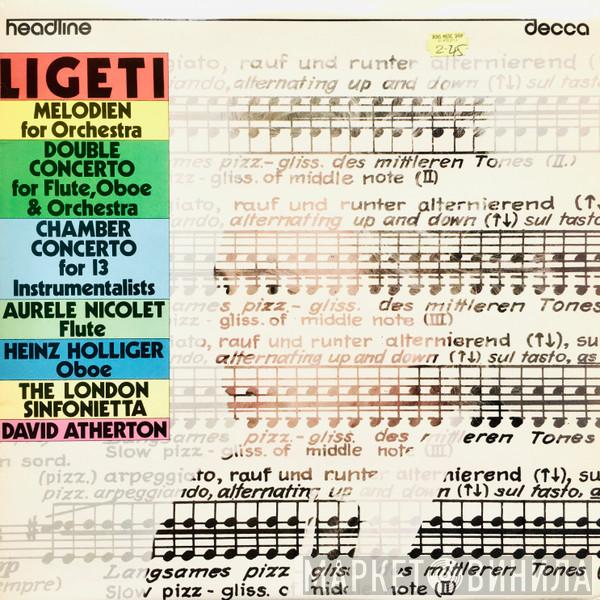 headline
decca
2-45
LIGETI
MELODIEN
for Orchestra
DOUBLE
CONCERTO
for Flute, Oboe
& Orchestra
CHAMBER
CONCERTO
for 13
Instrumentalists
AURELE NICOLET
Flute
HEINZ HOLLIGER
Oboe
THE LONDON
SINFONIETTA
DAVID ATHERTON
giato, rauf und runter alternierend (
ando, alternating up and down (↑↓) sul tasto
ames pizz.-gliss. des mittleren Tones (II.)
pizz - gliss. of middle note (II)
giato, rauf und runter alternierend (↑↓
ando, alternating up and down (↑↓) sul tasto
ames pizz-gliss. des mittleren Tones
pizz - gliss. of middle note (III)
giato, rauf und runter alternierend (↑↓), su
alternating up and down (↑↓) sul tasto, as
Langsames pizz.-gliss. des mittleren Tones
Slow pizz - gliss. of middle note (III)
n sord.
(pizz.) arpeggiato, rauf und runter alternierend (↑↓), su
pizz. arpeggiando, alternating up and down (↑↓) sul tasto, a
pp
empre)
Langsames pizz gliss mittleren Tones
Slow pizz - gliss. middle note (II)
МАРКЕТ ВИНИЛА